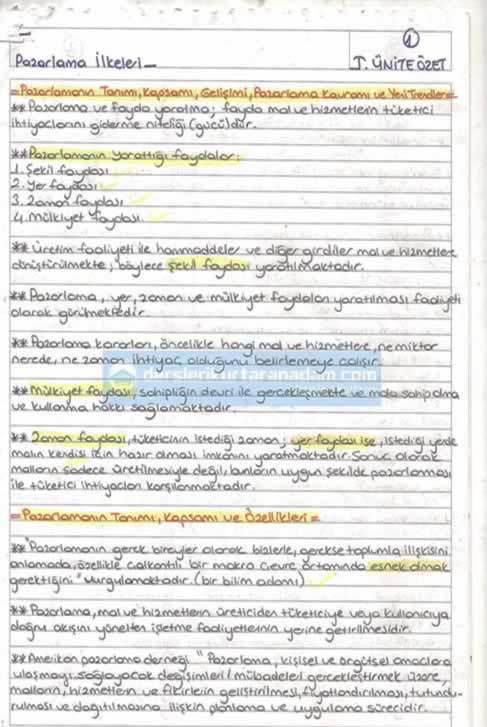 1
Pazarlama İlkeleri_
I. ÜNİTE ÖZET
=Pazarlamanın Tanımı, Kapsamı, Gelişimi, Pazarlama Kavramı ve Yeni Trendler=
**Pazarlama ve fayda yaratma; fayda mal ve hizmetlerin tüketici
ihtiyaçlarını giderme niteliği (gücü)dür.
**Pazarlamanın yarattığı faydalar:
1. Şekil faydası
2. Yer faydası
3. Zaman faydası
4. Mülkiyet faydası.
** Üretim faaliyeti ile hammaddeler ve diğer girdiler mal ve hizmetlere
dönüştürülmekte, böylece şekil faydası yaratılmaktadır.
**Pazarlama, yer, zaman ve mülkiyet faydaları yaratılması faaliyeti
olarak görülmektedir.
**Pazarlama kararları, öncelikle hangi mal ve hizmetlere, ne miktar
nerede, ne zaman ihtiyaç olduğunu belirlemeye çalışır.
derslerikurtaranadam.com
**Mülkiyet faydası, sahipliğin devri ile gerçekleşmekte ve mala sahip olma
ve kullanma hakkı sağlamaktadır.
** Zaman faydası, tüketicinin istediği zaman; yer faydası ise, istediği yerde
malın kendisi için hazır olması imkanını yaratmaktadır. Sonuç olarak
malların sadece üretilmesiyle değil, bunların uygun şekilde pazarlanması
ile tüketici ihtiyaçları karşılanmaktadır.
=Pazarlamanın Tanımı, Kapsamı ve Özellikleri=
**"Pazarlamanın gerek bireyler olarak bizlerle, gerekse toplumla ilişkisini
anlamada, özellikle çalkantılı bir makro çevre ortamında esnek olmak
gerektiğini" vurgulamaktadır. (bir bilim adamı)
**Pazarlama, mal ve hizmetlerin üreticiden tüketiciye veya kullanıcıya
doğru akışını yönelten işletme faaliyetlerinin yerine getirilmesidir.
**Amerikan pazarlama derneği "Pazarlama, kişisel ve örgütsel amaçlara
ulaşmayı sağlayacak değişimleri/mübadeleri gerçekleştirmek üzere,
malların, hizmetlerin ve fikirlerin geliştirilmesi, fiyatlandırılması, tutundu-
rulması ve dağıtılmasına ilişkin planlama ve uygulama sürecidir.